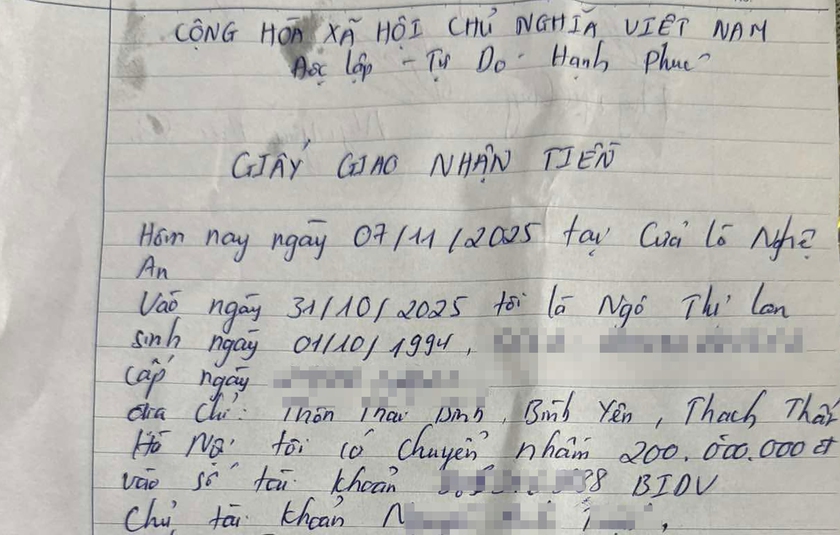 CỘNG HÒA XÃ HỘI CHỦ NGHĨA VIỆT NAM
Độc lập - Tự Do - Hạnh Phúc
GIẤY GIAO NHẬN TIỀN
Hôm nay ngày 07/11/2025 tại Cửa lò Nghệ
An
Vào ngày 31/10/2025 tôi là Ngô Thị lan
sinh ngày 01/10/1994,
cấp ngày
địa chỉ: Thôn Thái Bình, Bình Yên, Thạch Thất
Hà Nội tôi có chuyển nhầm 200.000.000đ
vào số tài khoản 38 BIDV
Chủ tài khoản N